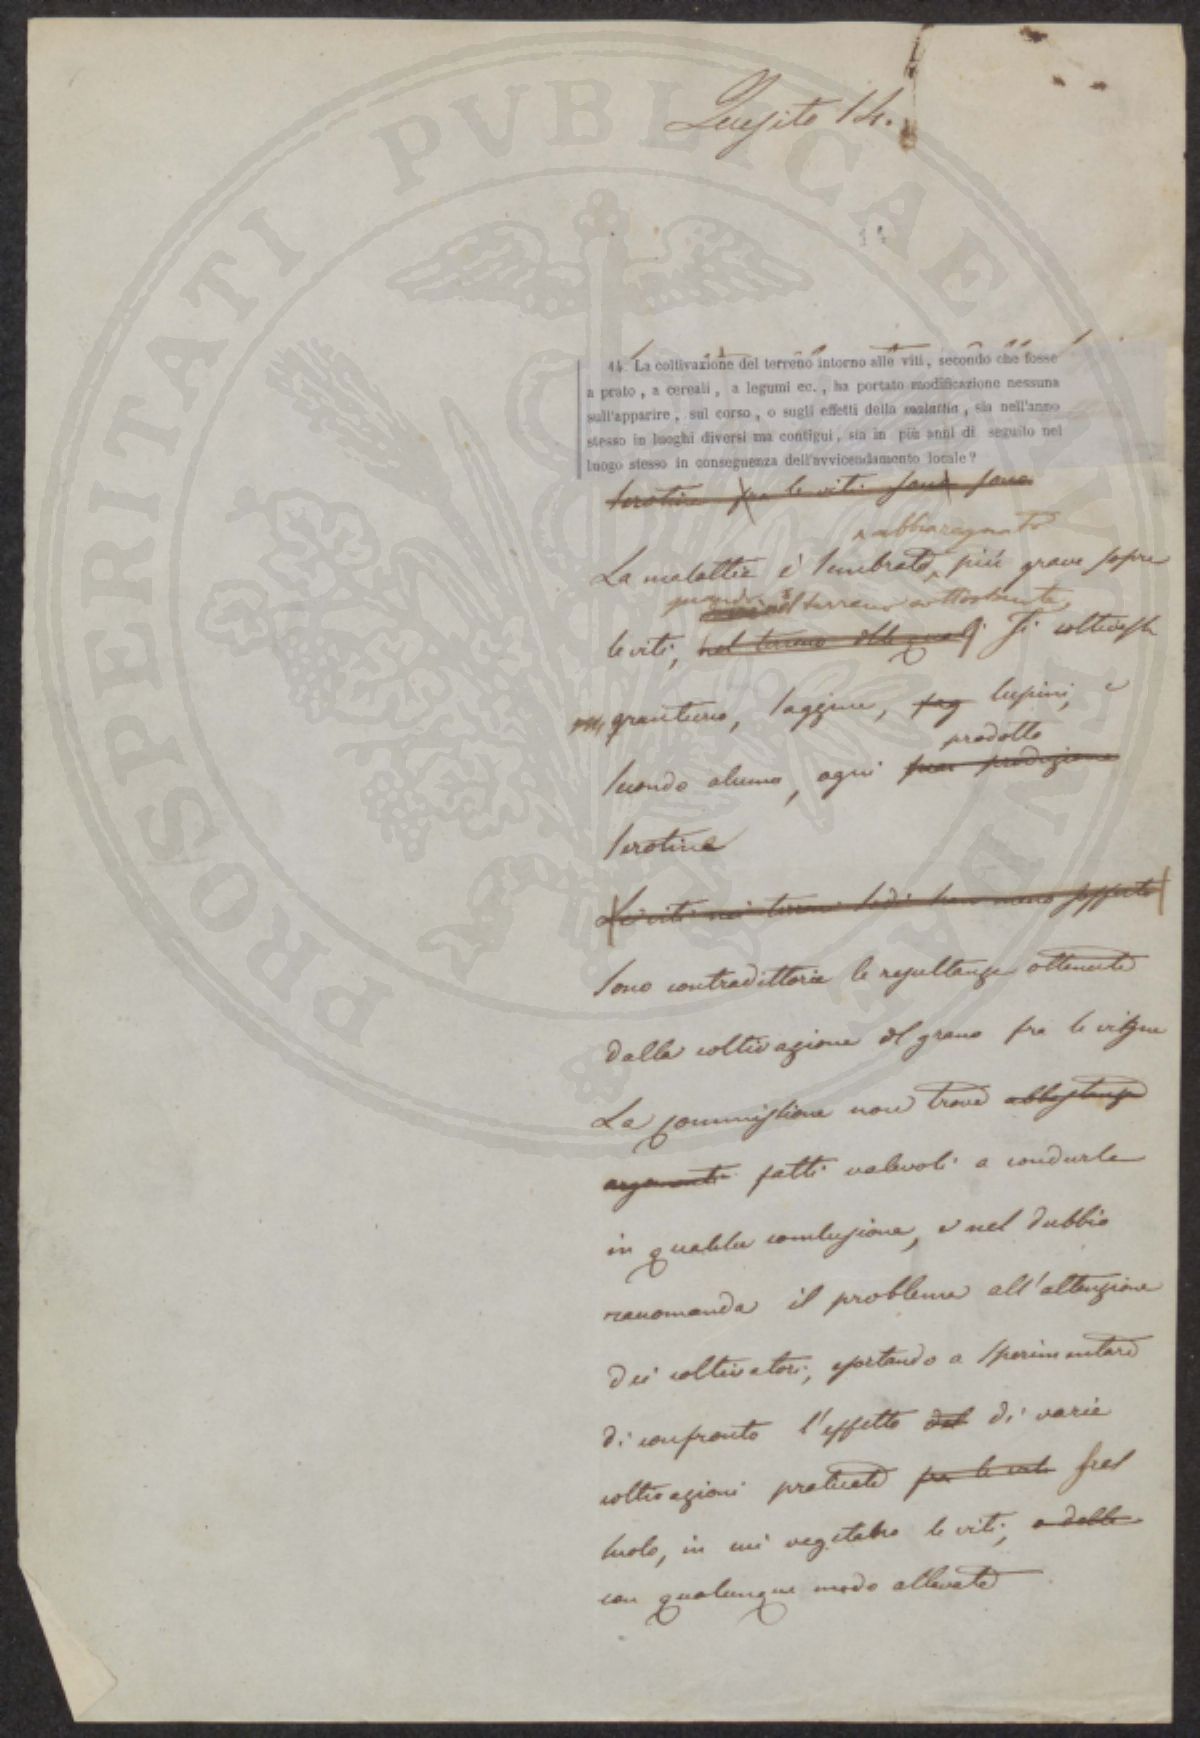 Quesito 14.
14
14. La coltivazione del terreno intorno alle viti, secondo che fosse
a prato, a cereali, a legumi ec., ha portato modificazione nessuna
sull'apparire, sul corso, o sugli effetti della malattia, sia nell'anno
stesso in luoghi diversi ma contigui, sia in più anni di seguito nel
luogo stesso in conseguenza dell'avvicendamento locale?
serotine fra le viti sono
La malattia è sembrata più grave sopra
quando nel terreno sottostante,
le viti, nel terreno delle quali si coltivasse
granturco, saggina, lupini, e
prodotto
secondo alcuno, ogni produzione
serotina
Le viti nei terreni sodi han meno sofferto
Sono contradittorie le resultanze ottenute
dalla coltivazione del grano fra le vigne
La Commissione non trova abbastanza
argomenti fatti valevoli a condurla
in qualche conclusione, e nel dubbio
raccomanda il problema all'attenzione
dei coltivatori, esortando a sperimentare
di confronto l'effetto del di varie
coltivazioni praticate fra le viti nel
suolo, in cui vegetano le viti, o delle
con qualunque modo allevate
PROSPERITATI PVBLICAE AVGENDAE